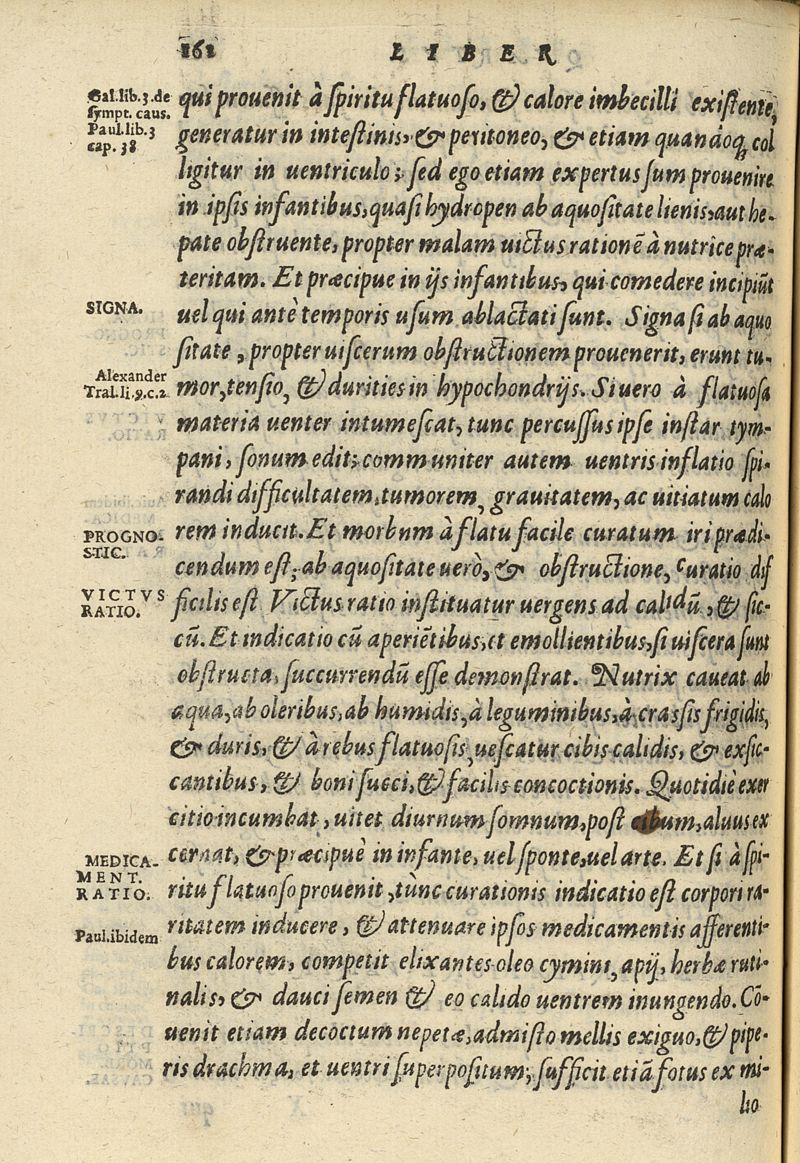 161 LIBER
Gal. lib. 3. de
sympt. caus.
Paul. lib. 3
cap. 38
qui prouenit à spiritu flatuoso, & calore imbecilli existente,
generatur in intestinis, & peritoneo, & etiam quandoq; col
ligitur in uentriculo; sed ego etiam expertus sum prouenire
in ipsis infantibus, quasi hydropen ab aquositate lienis, aut he-
pate obstruente, propter malam uictus rationē à nutrice præ-
teritam. Et præcipue in ijs infantibus, qui comedere incipiūt
SIGNA.
uel qui antè temporis usum ablactati sunt. Signa si ab aquo
sitate, propter uiscerum obstructionem prouenerit, erunt tu-
Alexander
Tral. li. 9. c. 2
mor, tensio, & durities in hypochondrijs. Si uero à flatuosa
materia uenter intumescat, tunc percussus ipse instar tym-
pani, sonum edit; communiter autem uentris inflatio spi-
randi difficultatem, tumorem, grauitatem, ac uitiatum calo
PROGNO-
STIC.
rem inducit. Et morbnm à flatu facile curatum iri prædi-
cendum est; ab aquositate uerò, & obstructione, curatio dif
VICTVS
RATIO.
ficilis est Victus ratio instituatur uergens ad calidū, & sic-
cū. Et indicatio cū aperiētibus, et emollientibus, si uiscera sunt
obstructa, succurrendū esse demonstrat. Nutrix caueat ab
aqua, ab oleribus, ab humidis, à leguminibus, à crassis frigidis,
& duris, & à rebus flatuosis, uescatur cibis calidis, & exsic-
cantibus, & boni succi, & facilis concoctionis. Quotidiè exer
citio incumbat, uitet diurnum somnum, post cibum, aluus ex
MEDICA-
MENT.
RATIO.
cernat, & præcipuè in infante, uel sponte, uel arte. Et si à spi-
ritu flatuoso prouenit, tùnc curationis indicatio est corpori ra-
Paul. ibidem
ritatem inducere, & attenuare ipsos medicamentis afferenti-
bus calorem, competit elixantes oleo cymini, apij, herbæ ruti-
nalis, & dauci semen & eo calido uentrem inungendo. Cō-
uenit etiam decoctum nepetæ, admisto mellis exiguo, & pipe-
ris drachma, et uentri superpositum; sufficit etiā fotus ex mi-
lio